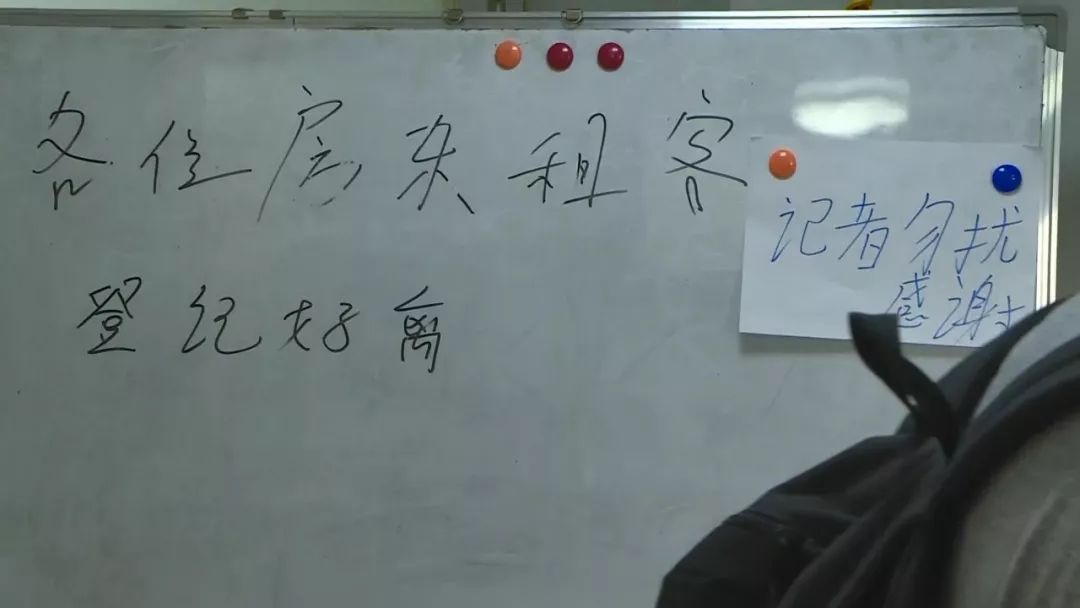 各位房东租客
登记好离
记者勿扰
感谢